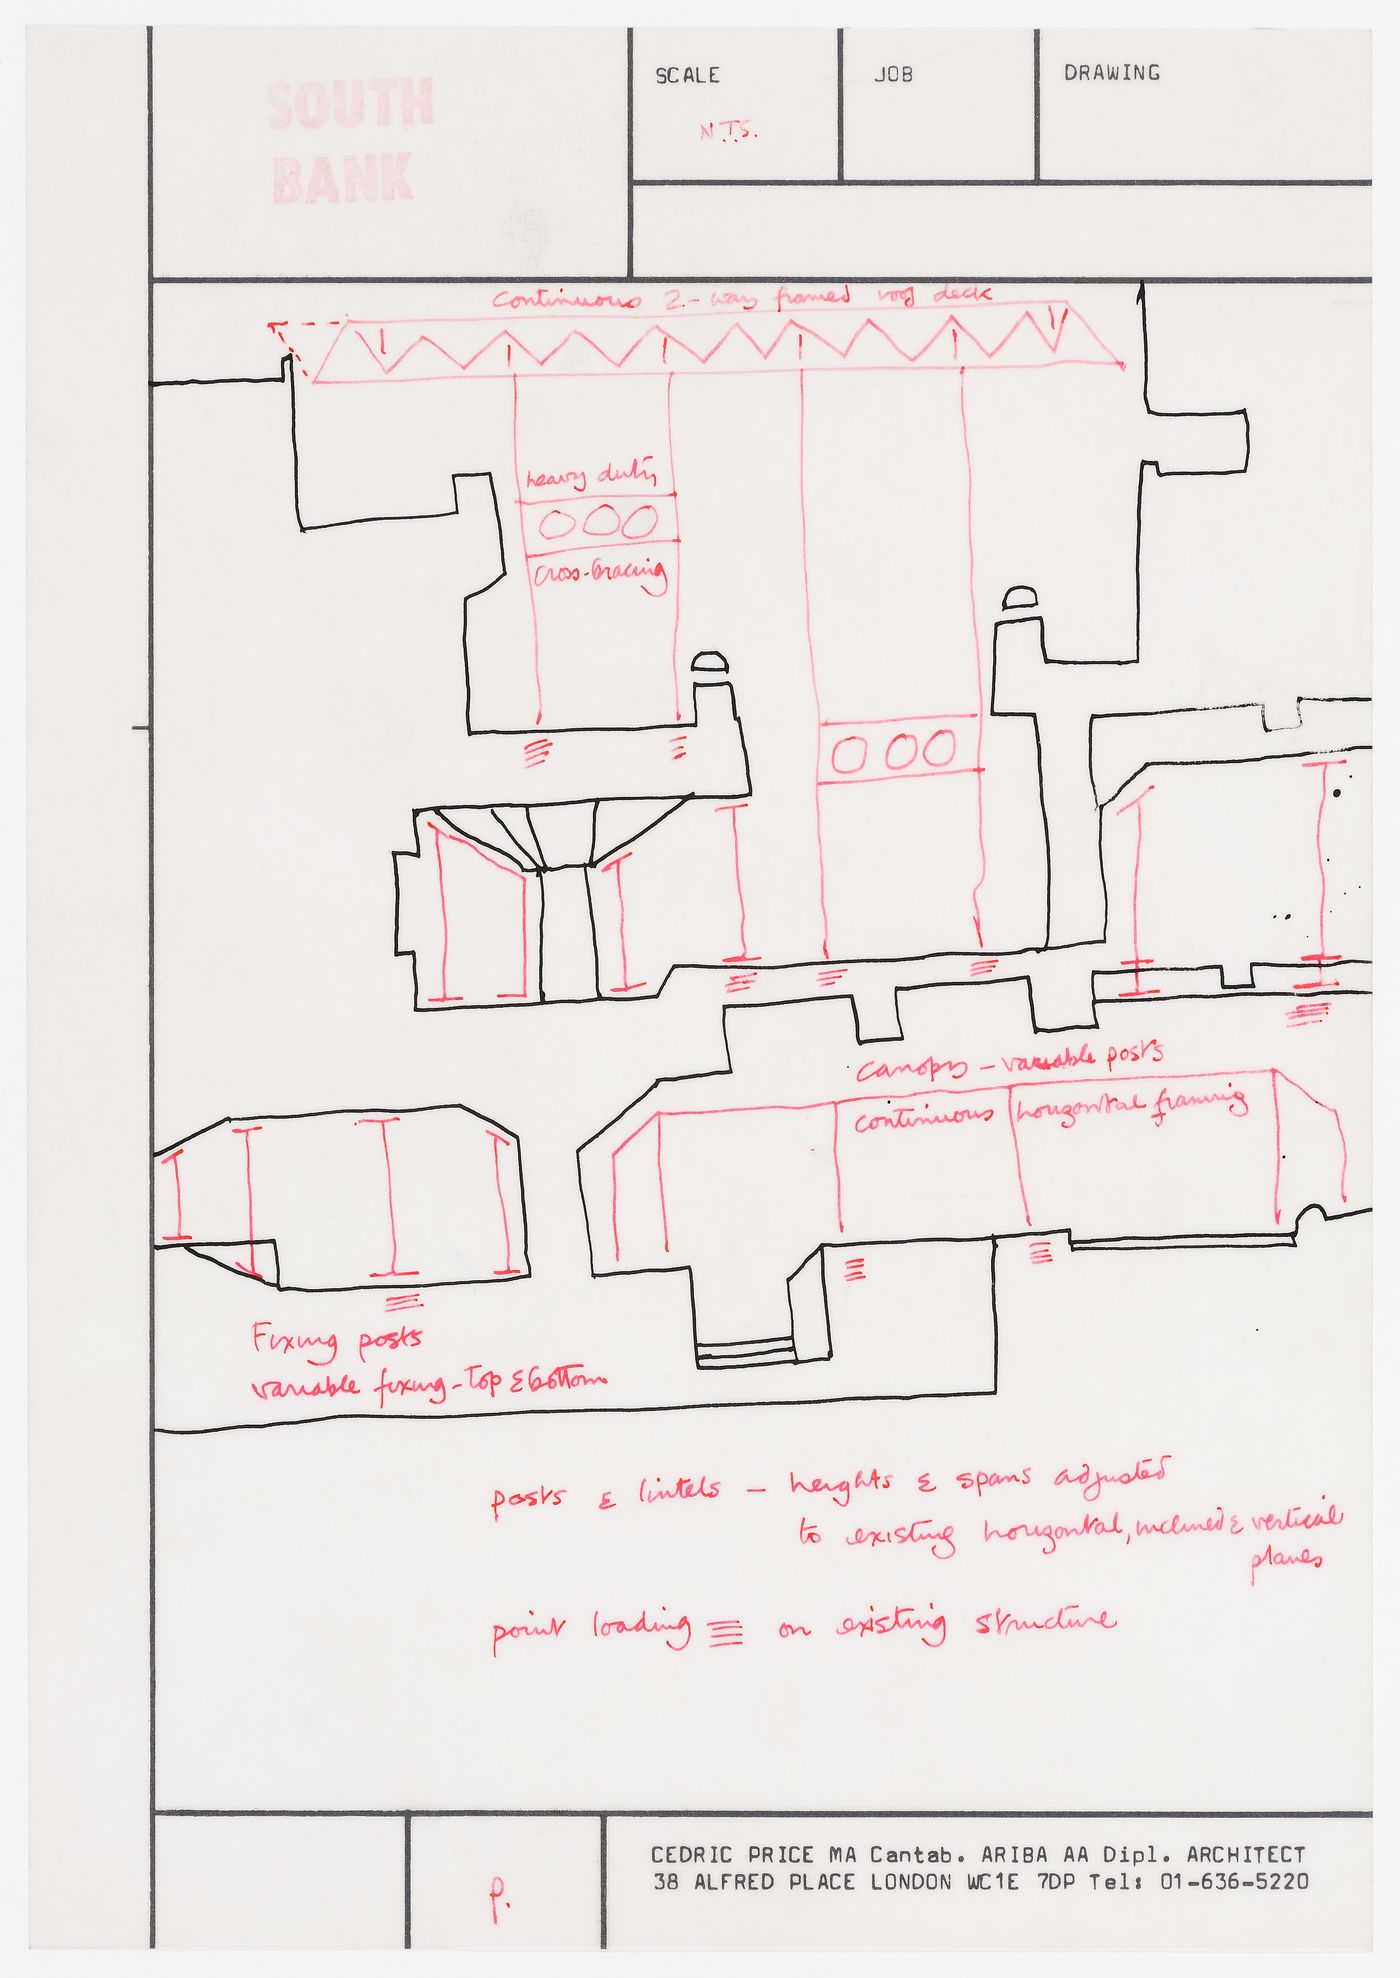 SOUTH
BANK
SCALE
N.T.S.
JOB
DRAWING
Continuous 2-way framed roof deck
heavy duty
cross-bracing
Canopy – variable posts
continuous horizontal framing
Fixing posts
variable fixing - top & bottom
posts & lintels – heights & spans adjusted
to existing horizontal, inclined & vertical
planes
point loading on existing structure
P.
CEDRIC PRICE MA Cantab. ARIBA AA Dipl. ARCHITECT
38 ALFRED PLACE LONDON WC1E 7DP Tel: 01-636-5220